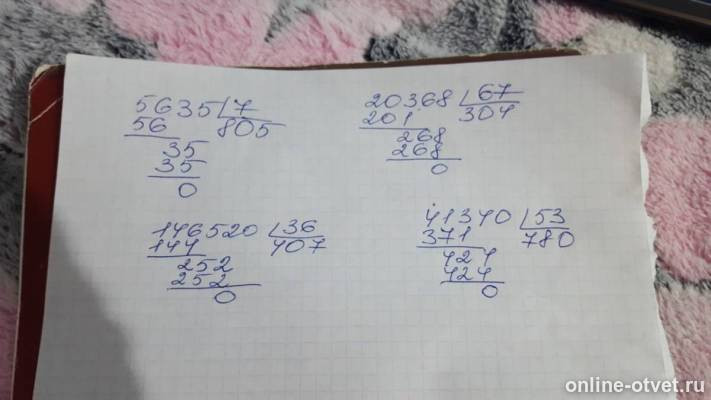 5635 7
56 805
35
35
0
20368 67
201 304
268
268
0
146520 36
144 407
252
252
0
41340 53
371 780
424
424
0
online-otvet.ru